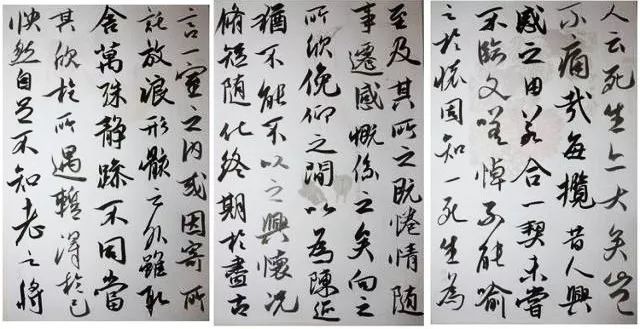 言一室之内或因寄所
託放浪形骸之外雖取
舍萬殊靜躁不同當
其欣於所遇暫得於己
怏然自足不知老之將
至及其所之既惓情隨
事遷感慨係之矣向之
所欣俛仰之間以為陳迹
猶不能不以之興懷況
脩短隨化終期於盡古
人云死生亦大矣豈
不痛哉每攬昔人興
感之由若合一契未嘗
不臨文嗟悼不能喻
之於懷固知一死生為